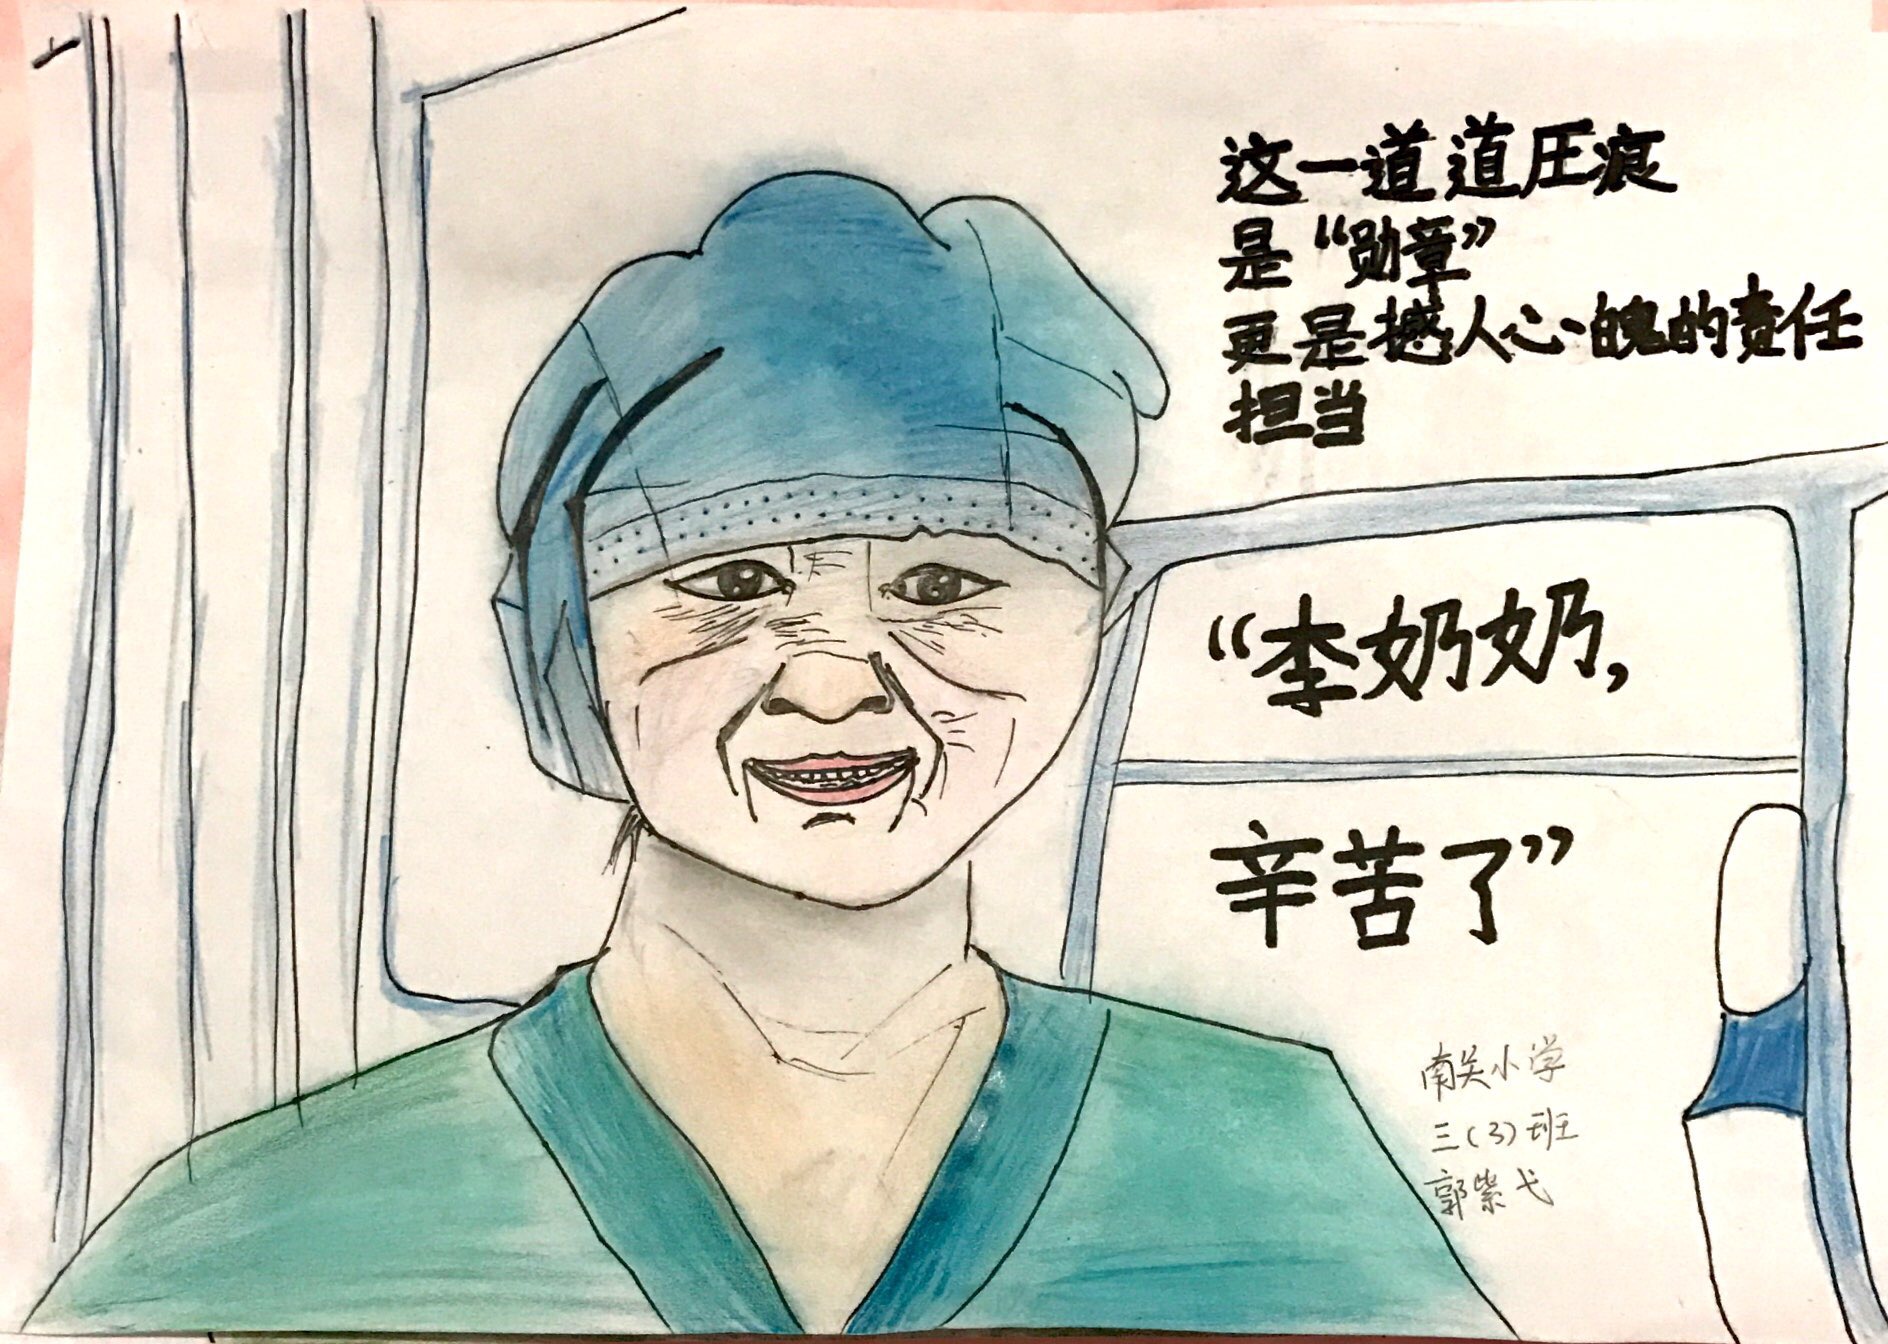 这一道道压痕
是“勋章”
更是撼人心魄的责任
担当
“李奶奶,
辛苦了”
南关小学
三(3)班
郭紫弋